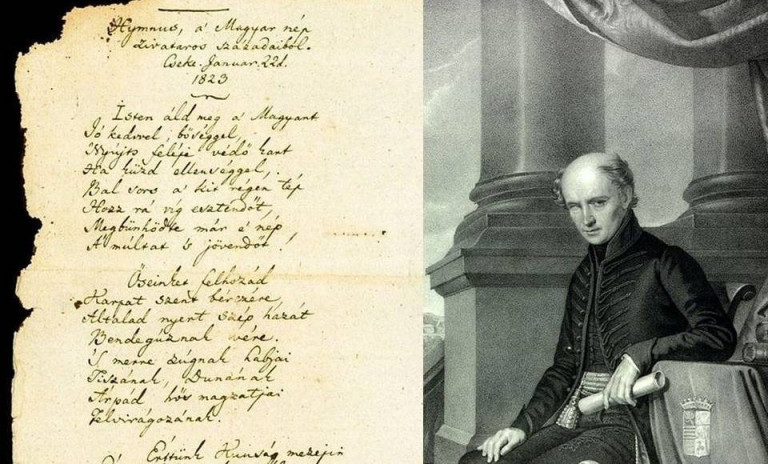 Hymnus, a' Magyar nép
zivataros századaiból.
Cseke. Januar. 22d.
1823
Isten áld meg a' Magyart
Jó kedvvel, bőséggel,
Nyújts feléje védő kart
Ha küzd ellenséggel,
Bal sors a' kit régen tép
Hozz rá víg esztendőt,
Megbűnhödte már e' nép
A' múltat 's jövendőt!
Őseinket felhozád
Kárpát szent bérczére,
Általad nyert szép hazát
Bendegúznak vére.
'S merre zúgnak habjai
Tiszának, Dunának
Árpád hős magzatjai
Felvirágozának.
Értünk Kunság mezejin